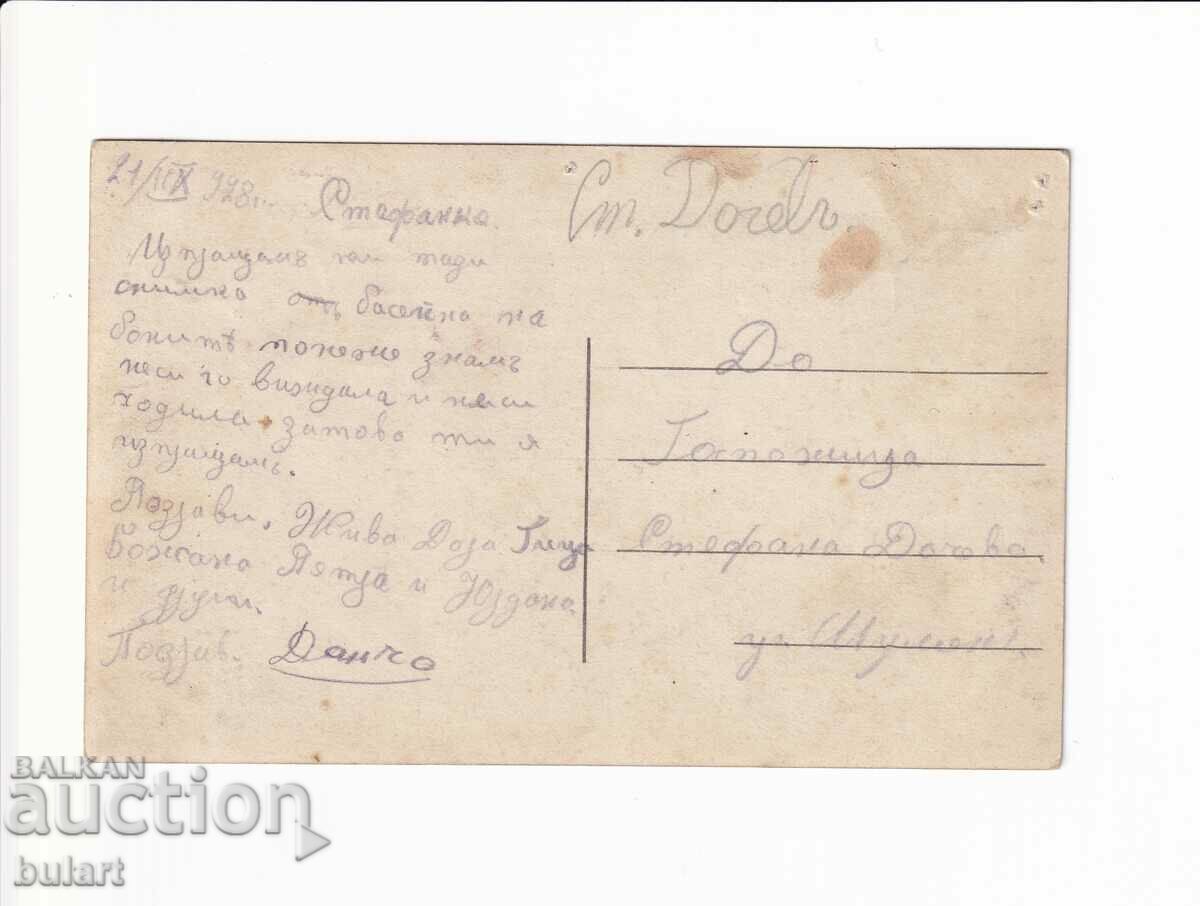 928г.
Стефанке
Изпращамъ ти тази
снимка отъ басейна на
банитѣ понеже знамъ
неси го виждала и неси
ходила затова ти я
изпращамъ.
Поздрави. Жива Доза Гица
Божана Пятра и Юрдана
и други.
Поздрав. Данчо
Ст. Дочевъ.
До
Госпожица
Стефана Дочова
BALKAN
auction
bulart